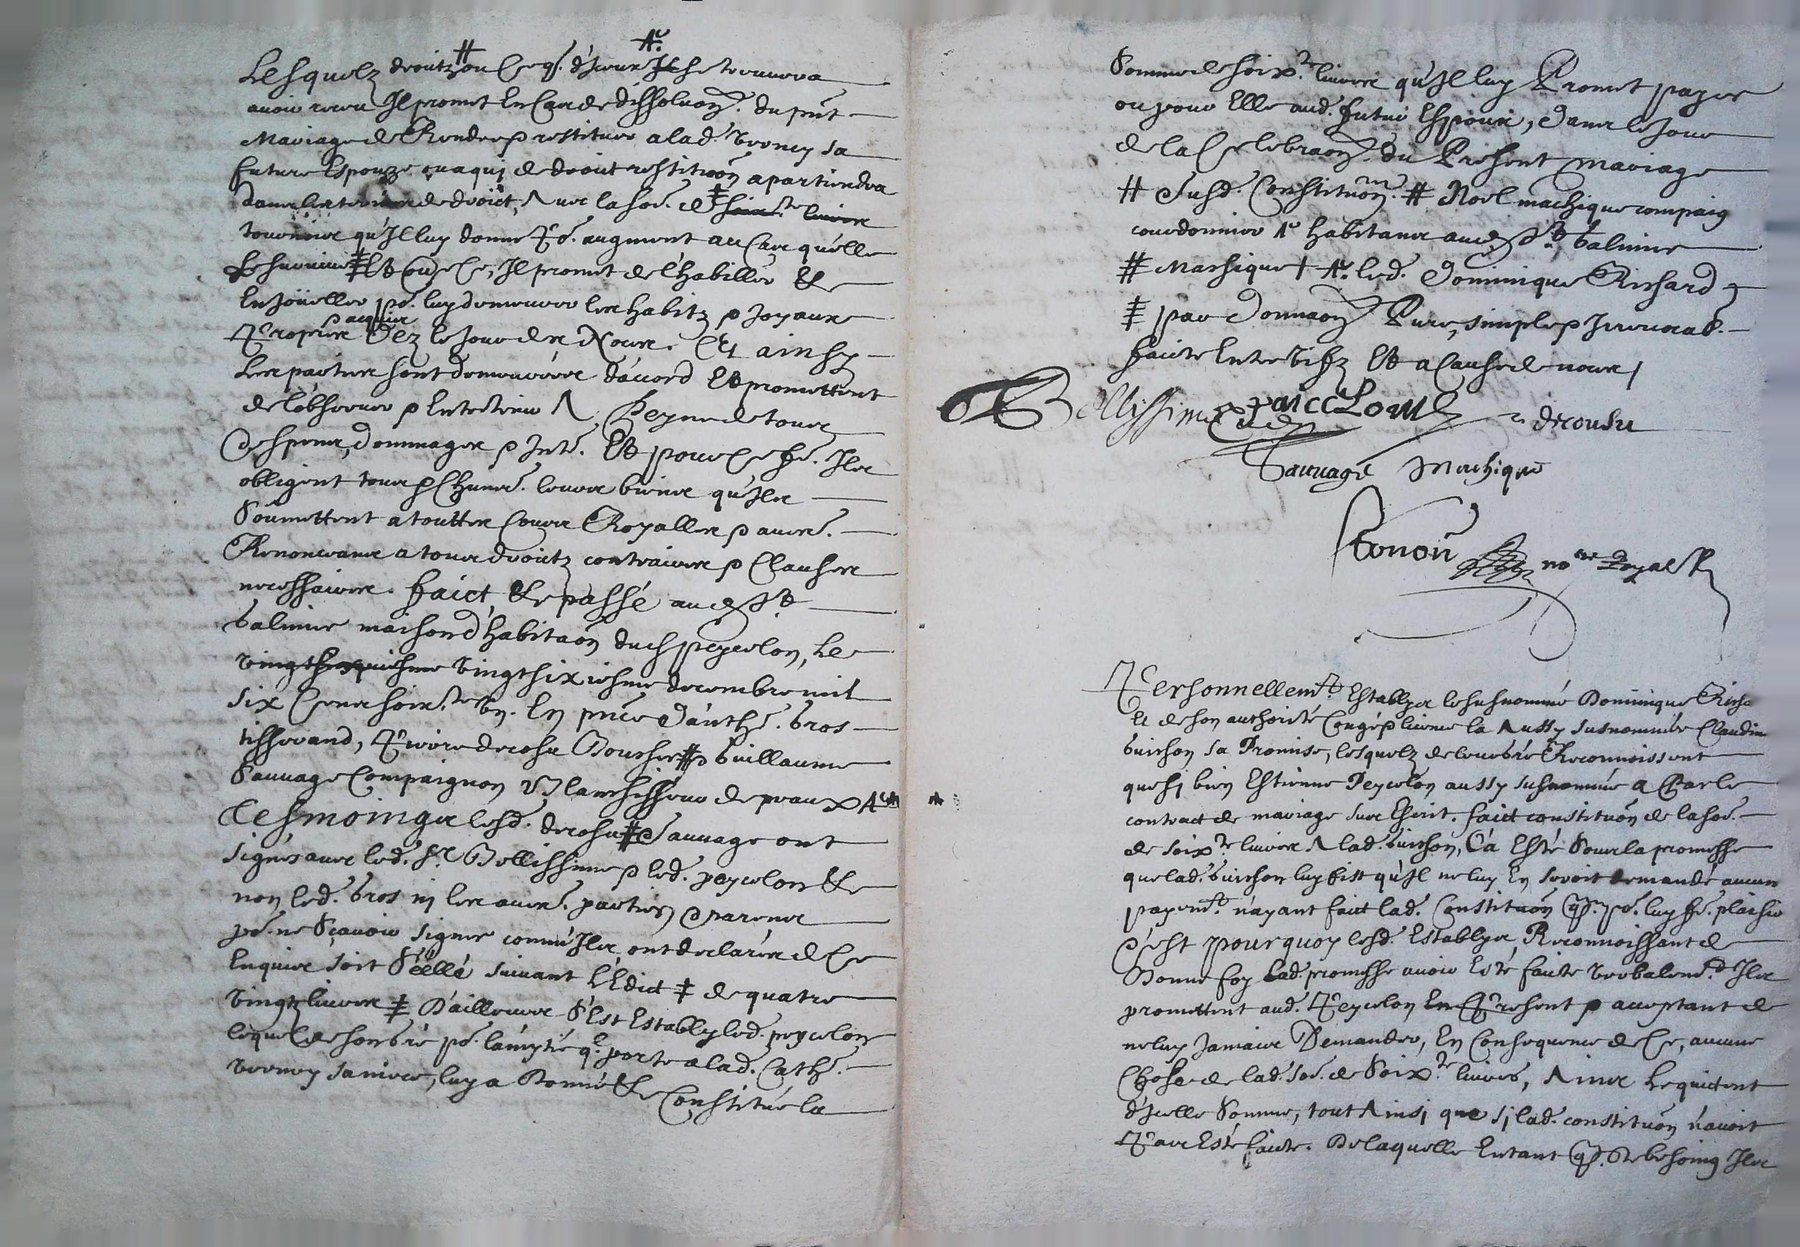 Lesquelz droitz # ou ce q. d'iceux Il se trouvera
avoir receu Il promet en cas de dissoluon. du pnt
Mariage de Rendre & restituer a lad. verney sa
future Espouze, ou a qui de droit restituon apartiendra
de droict, Avec la so.e de ‡
tournoiz qu'Il luy donne p. augment au cas qu'elle
le survive ‡ Et ou ce, Il promet de l'habiller &
Enjoüeller p. luy demeurer les habitz & joyaux
Propres acquis Dez le jour des Noces. Et ainsy
Les parties sont demeurées d'acord Et promettent
de l'observer & Entretenir A Peyne de tous
Despens, dommages & Intz. Et pour ce fe. Ilz
obligent tous & Chuns. leurs biens qu'Ilz
Soumettent a touttes Cours Royalles & autres.
Renonceans a tous droictz contraires & Clauses
necessaires. faict & passé aud. St
Galmier maison d'habitaon dud. peycelon, Le
vingtsixiesme decembre mil
six Cens soix.te un. En pnce d'anth. bros
tisserand, Pierre decosu Boucher # & Guillaume
Sauvage Compaignon Blanchisseur de peaux A.
Tesmoings lesd. decosu # & Sauvage ont
signés avec led. Sr Bellissime & led. peycelon &
non led. bros ni les autres. parties & parens
p. ne Scavoir signer comme Ilz ont declarés de ce
Enquis soit Séellé suivant L'Edict ‡ de quatre
vingtz livres ‡ D'ailleurs S'Est Estably led. peycelon
lequel de son bré p. l'amytié q. porte a lad. Cath.
verney sa niece, luy a Donné & Constitué la
Somme de soix.te livres qu'Il luy Promet payer
ou pour Elle aud. futur Espoux, dans le jour
de la Celebraon. du Present mariage
# Susd. Constituon. # Noel machique compaig
courdonnier A. habitans aud. St Galmier
# Machique † A. led. Dominique Richard
‡ par Donnaon Pure, simple & Irrevocab.
faicte Entre Vifz Et a Cause de noces /
Bellissime peicelon decousu
Sauvage Machique
Ronon no.re Royal R
Personnellemt. Establys le susnommé Dominique Richa
Et de son authorité Congé & licence la Aussy susnommée Claudin
buisson sa Promise, lesquelz de leur bré Recconnoissent
que si bien Estienne Peycelon aussy susnommé a Par le
contract de mariage sus Escrit. faict constituon de la so.e
de soix.te livres A lad. buisson, C'a Esté Sous la promesse
que lad. buisson luy fist qu'Il ne luy En seroit demandé aucun
payemt. n'ayant faict lad. Constituon q. p. luy fe. plaisir
C'est pourquoy lesd. Establys, Reconnoissant de
Bonne foy Lad. promesse avoir Esté faicte verbalemt. Ilz
promettent aud. Peycelon Present & acceptant de
ne luy Jamais Demander, En Consequence de Ce, aucune
Chose de lad. so.e de Soix.te livres, Ains Le quictent
d'Jcelle Somme, tout Ainsi que si lad. constituon n'avoit
Pas Esté faicte. De laquelle Entant q. de besoing Ilz